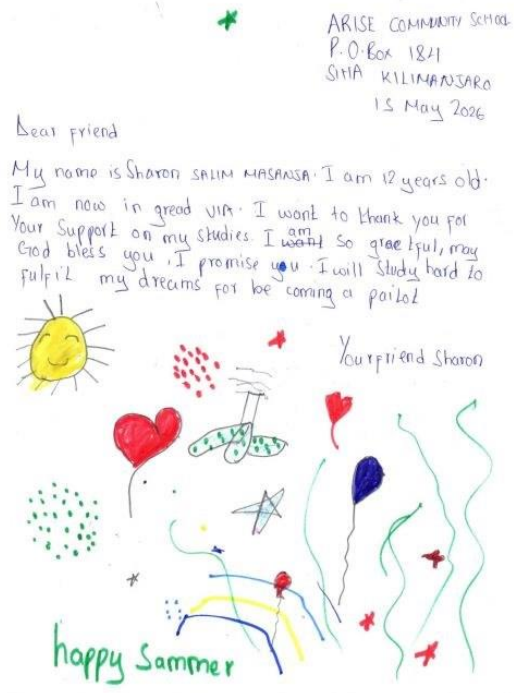 ARISE COMMUNITY SCHOOL
P.O.Box 184
SIHA KILIMANJARO
15 May 2026
Dear friend
My name is Sharon SALIM MASANJA. I am 12 years old.
I am now in gread VIA. I want to thank you for
Your Support on my studies. I want am so graetful, may
God bless you, I promise you. I will study hard to
fulfil my dreams for be coming a pailot
Your friend Sharon
happy Sammer